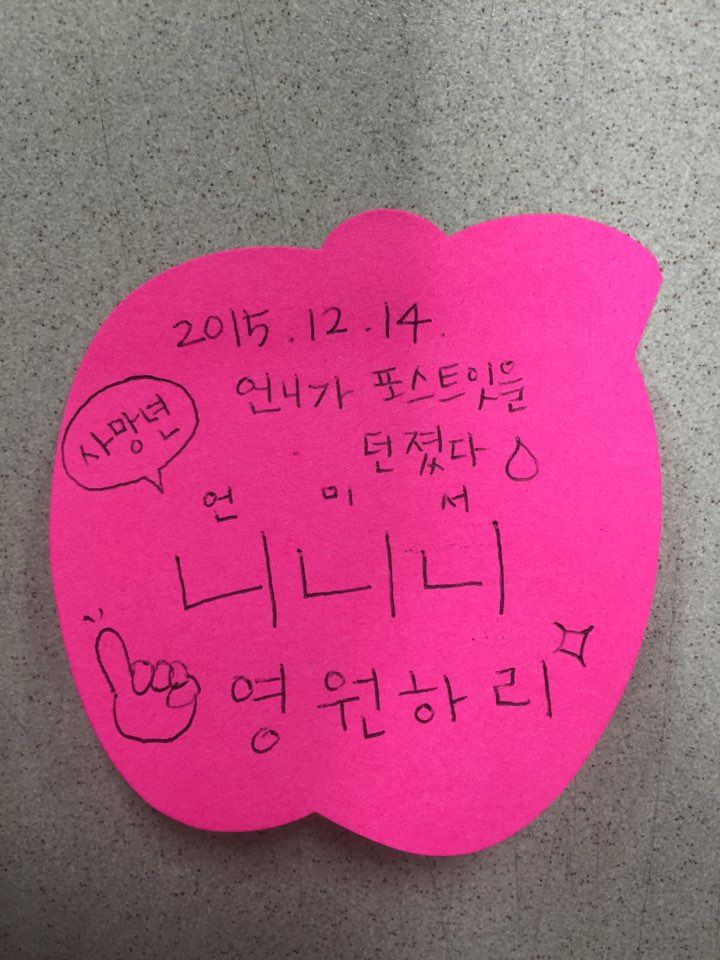 2015.12.14.
언니가 포스트잇을
던졌다
사망년
언 미 서
니 니 니
영원하리